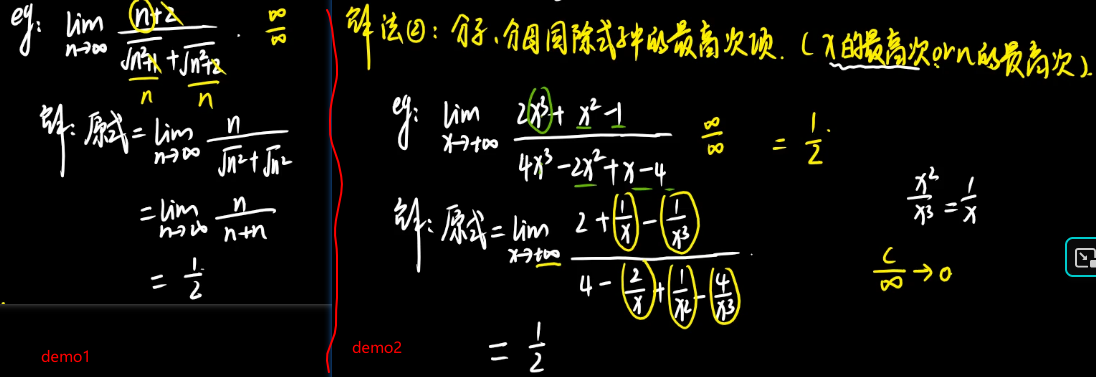 eg: lim n→∞ (n+2)/(√(n²+1) + √(n²+2)) . ∞/∞
n n
解: 原式 = lim n→∞ n/(√n² + √n²)
= lim n→∞ n/(n+n)
= 1/2
demo1
解法②: 分子、分母同除式子中的最高次项. (x的最高次or n的最高次).
eg: lim x→+∞ (2x³+x²-1)/(4x³-2x²+x-4) ∞/∞ = 1/2.
x²/x³ = 1/x
解: 原式 = lim x→+∞ (2 + 1/x - 1/x³)/(4 - 2/x + 1/x² - 4/x³).
c/∞ → 0
= 1/2
demo2